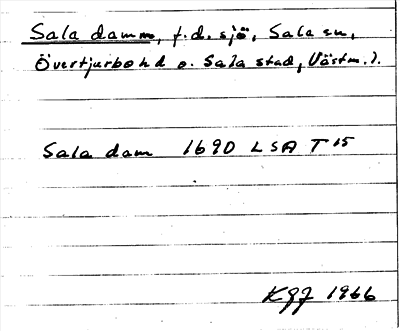 Sala damm, f.d. sjö, Sala sn,
Övertjurbo hd o. Sala stad, Västm.l.
Sala dam 1690 LSA T 15
KGJ 1966